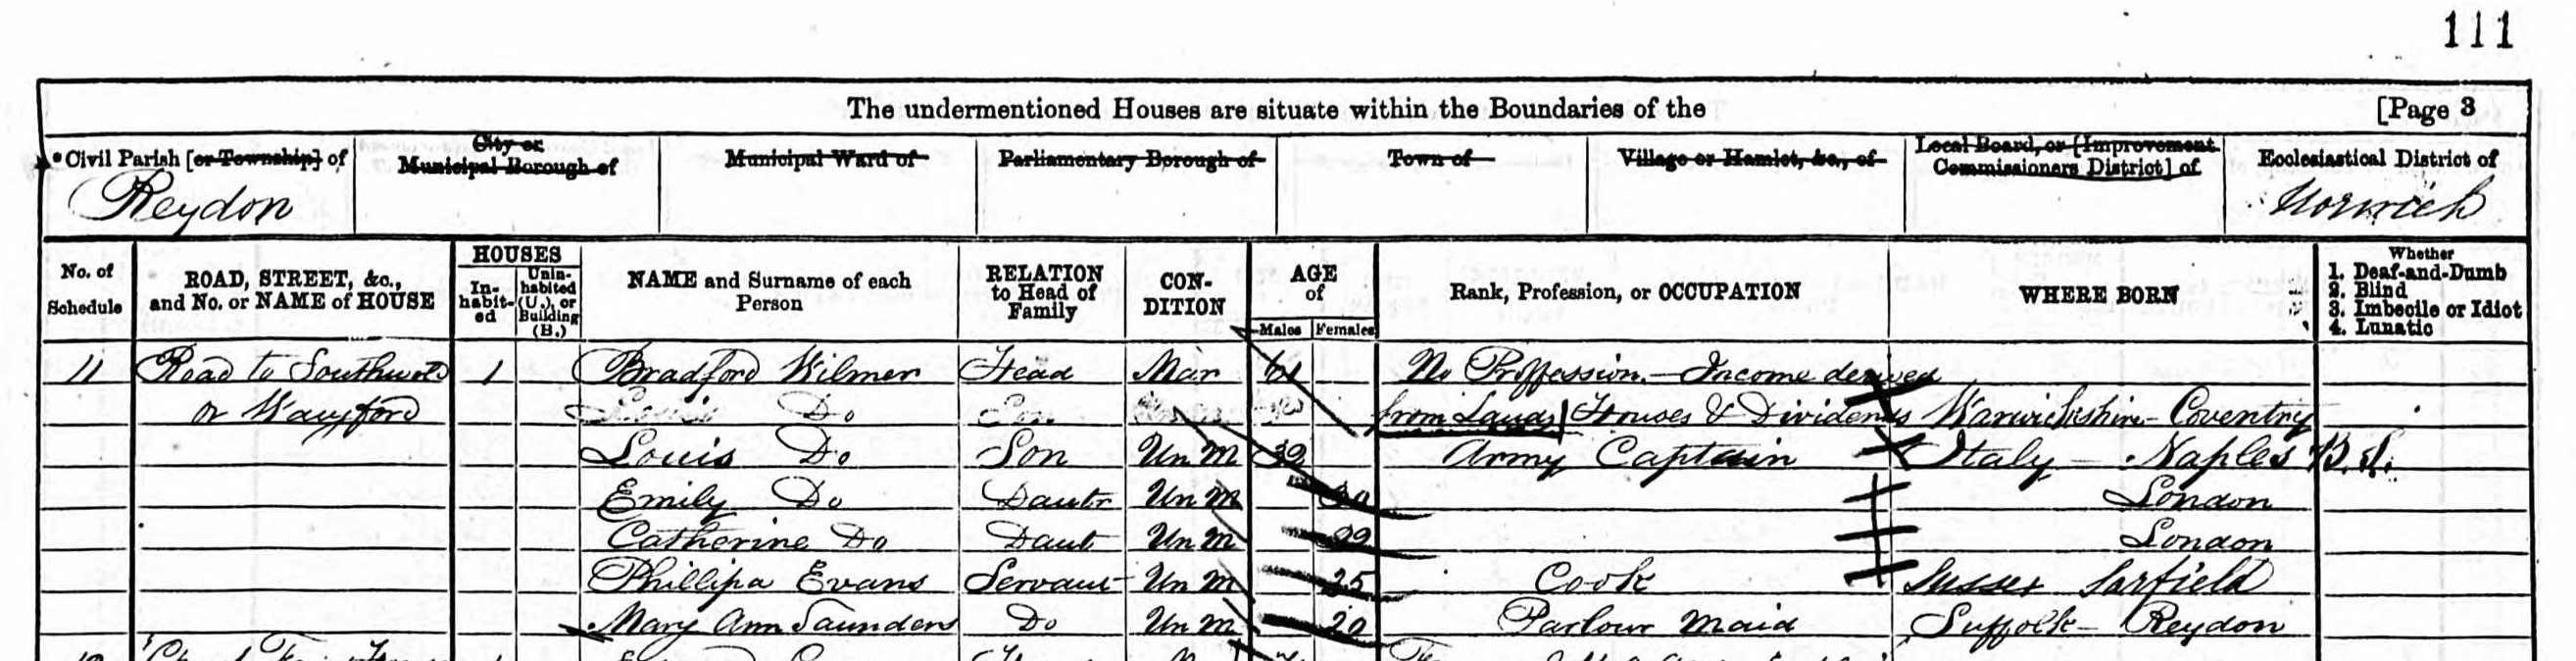 111
The undermentioned Houses are situate within the Boundaries of the [Page 3
Civil Parish [or Township] of
City or Municipal Borough of
Municipal Ward of
Parliamentary Borough of
Town of
Village or Hamlet, &c., of
Local Board, or [Improvement Commissioners District] of
Ecclesiastical District of
Reydon
Norwich
No. of Schedule
ROAD, STREET, &c., and No. or NAME of HOUSE
HOUSES
In-habit-ed
Unin-habited (U.), or Building (B.)
NAME and Surname of each Person
RELATION to Head of Family
CON-DITION
AGE of
Males Females
Rank, Profession, or OCCUPATION
WHERE BORN
Whether
1. Deaf-and-Dumb
2. Blind
3. Imbecile or Idiot
4. Lunatic
11 Road to Southwold 1 Bradford Wilmer Head Mar 61 No Proffession — Income derived
or Wangford Do from Lands Houses & Dividends Warwickshire - Coventry
Louis Do Son Un m 32 Army Captain Italy - Naples B.S.
Emily Do Dautr Un m London
Catherine Do Daut Un m 29 London
Phillipa Evans Servant Un m 25 Cook Sussex
Mary Ann Saunders Do Un m 20 Parlour Maid Suffolk - Reydon